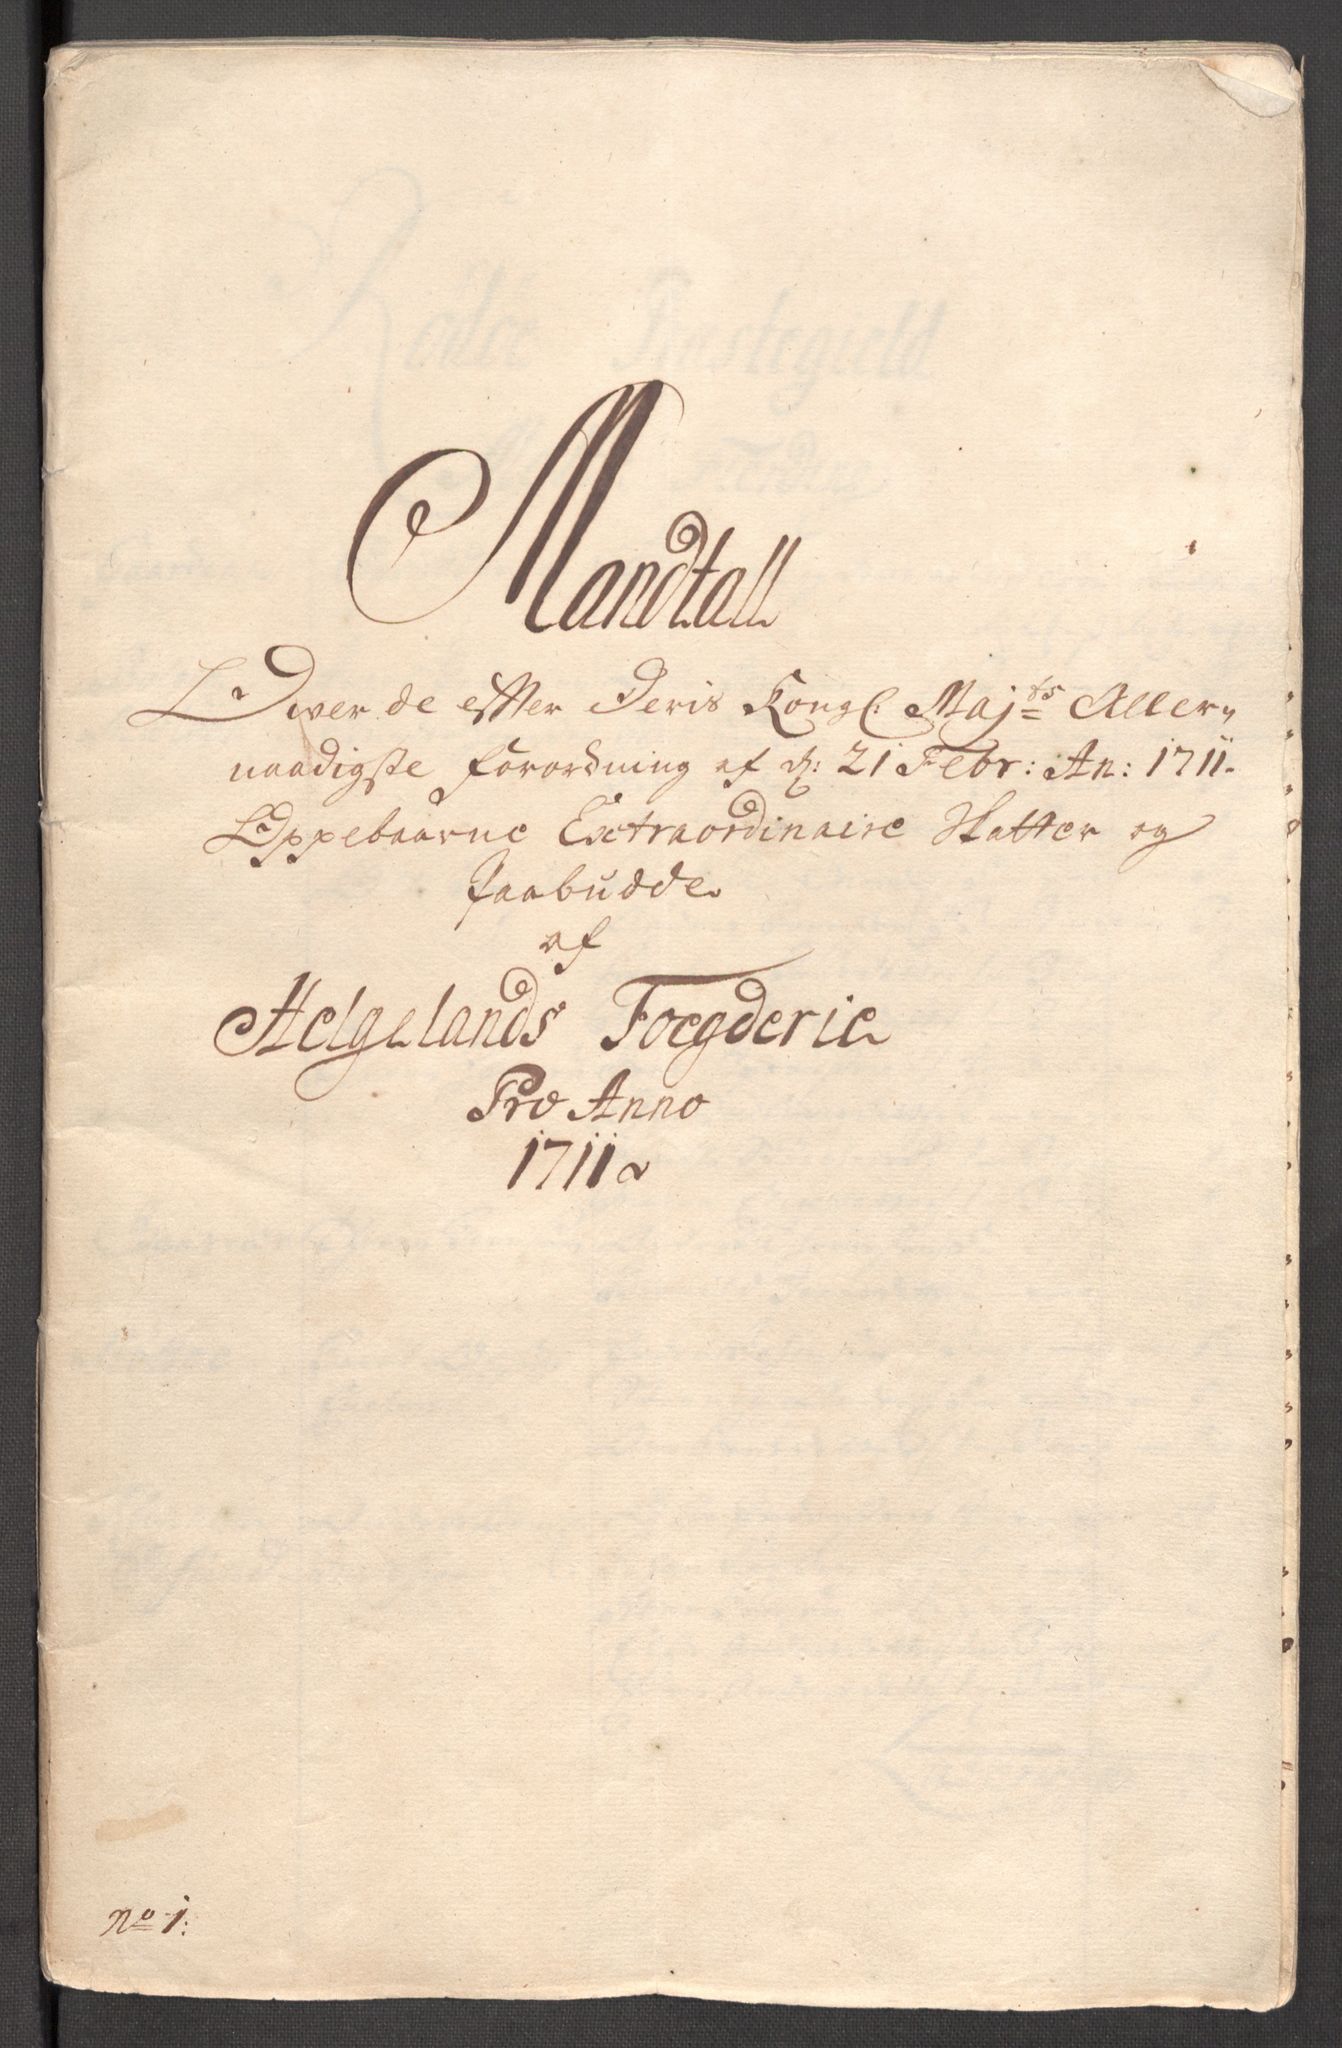 Mandtall
Over de efter Deris Kongl: Majts Aller,,
naadigste forordning af d: 21 Febr: An: 1711.
Oppebaarne Extraordinaire Skatter og
Paabudde
af
Helgelands Foegderie
Pro Anno
1711
No 1: